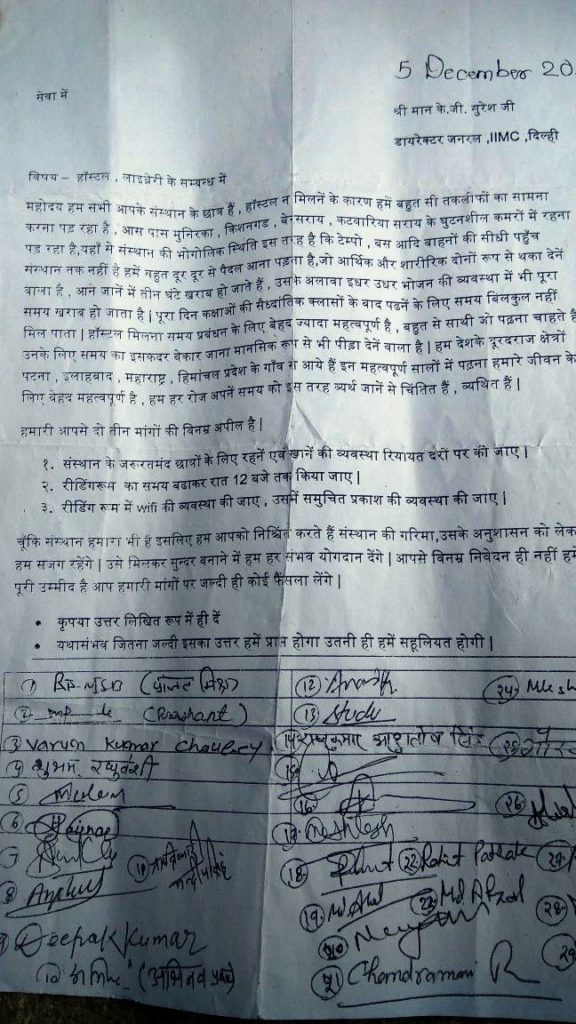 5 December 20
सेवा में
श्री मान के.जी. सुरेश जी
डायरेक्टर जनरल ,IIMC ,दिल्ली
विषय – हॉस्टल , लाइब्रेरी के सम्बन्ध में
महोदय हम सभी आपके संस्थान के छात्र हैं , हॉस्टल न मिलनें के कारण हमें बहुत सी तकलीफों का सामना
करना पड़ रहा है , आस पास मुनिरका , किशनगड , बेरसराय , कटवारिया सराय के घुटनशील कमरों में रहना
पड रहा है,यहाँ से संस्थान की भोगोलिक स्थिति इस तरह है कि टेम्पो , बस आदि वाहनों की सीधी पहुँच
संस्थान तक नहीं है हमें बहुत दूर दूर से पैदल आना पड़ता है,जो आर्थिक और शारीरिक दोनों रूप से थका देनें
वाला है , आने जानें में तीन घंटे खराब हो जाते हैं , उसके अलावा इधर उधर भोजन की व्यवस्था में भी पूरा
समय खराब हो जाता है | पूरा दिन कक्षाओं की सैध्दांतिक क्लासों के बाद पढनें के लिए समय बिलकुल नहीं
मिल पाता | हॉस्टल मिलना समय प्रबंधन के लिए बेहद ज्यादा महत्वपूर्ण है , बहुत से साथी जो पढ़ना चाहते है
उनके लिए समय का इसकदर बेकार जाना मानसिक रूप से भी पीड़ा देनें वाला है | हम देशके दूरदराज क्षेत्रों
पटना , इलाहबाद , महाराष्ट्र , हिमांचल प्रदेश के गाँव से आये हैं इन महत्वपूर्ण सालों में पढ़ना हमारे जीवन के
लिए बेहद महत्वपूर्ण है , हम हर रोज अपनें समय को इस तरह व्यर्थ जानें से चिंतित हैं , व्यथित हैं |
हमारी आपसे दो तीन मांगों की विनम्र अपील है |
१. संस्थान के जरूरतमंद छात्रों के लिए रहनें एवं खानें की व्यवस्था रियायत दरों पर की जाए |
२. रीडिंगरूम का समय बढाकर रात 12 बजे तक किया जाए |
३. रीडिंग रूम में wifi की व्यवस्था की जाए , उसमें समुचित प्रकाश की व्यवस्था की जाए |
चूँकि संस्थान हमारा भी है इसलिए हम आपको निश्चिंत करते हैं संस्थान की गरिमा,उसके अनुशासन को लेक
हम सजग रहेंगे | उसे मिलकर सुन्दर बनाने में हम हर संभव योगदान देंगे | आपसे विनम्र निवेदन ही नहीं हमे
पूरी उम्मीद है आप हमारी मांगों पर जल्दी ही कोई फैसला लेंगे |
• कृपया उत्तर लिखित रूप में ही दें
• यथासंभव जितना जल्दी इसका उत्तर हमें प्राप्त होगा उतनी ही हमें सहूलियत होगी |
१
२ (Prashant)
३ Varun Kumar Choudhary
४ शुभम रघुवंशी
५
६
७
८
९ Deepak Kumar
१० (अभिनव
१२
१३
१४
१५
१६
१७
१८
१९
२१ Chandramani
२२ Rohit Pathak
२३ Md Afzal
२४
२६